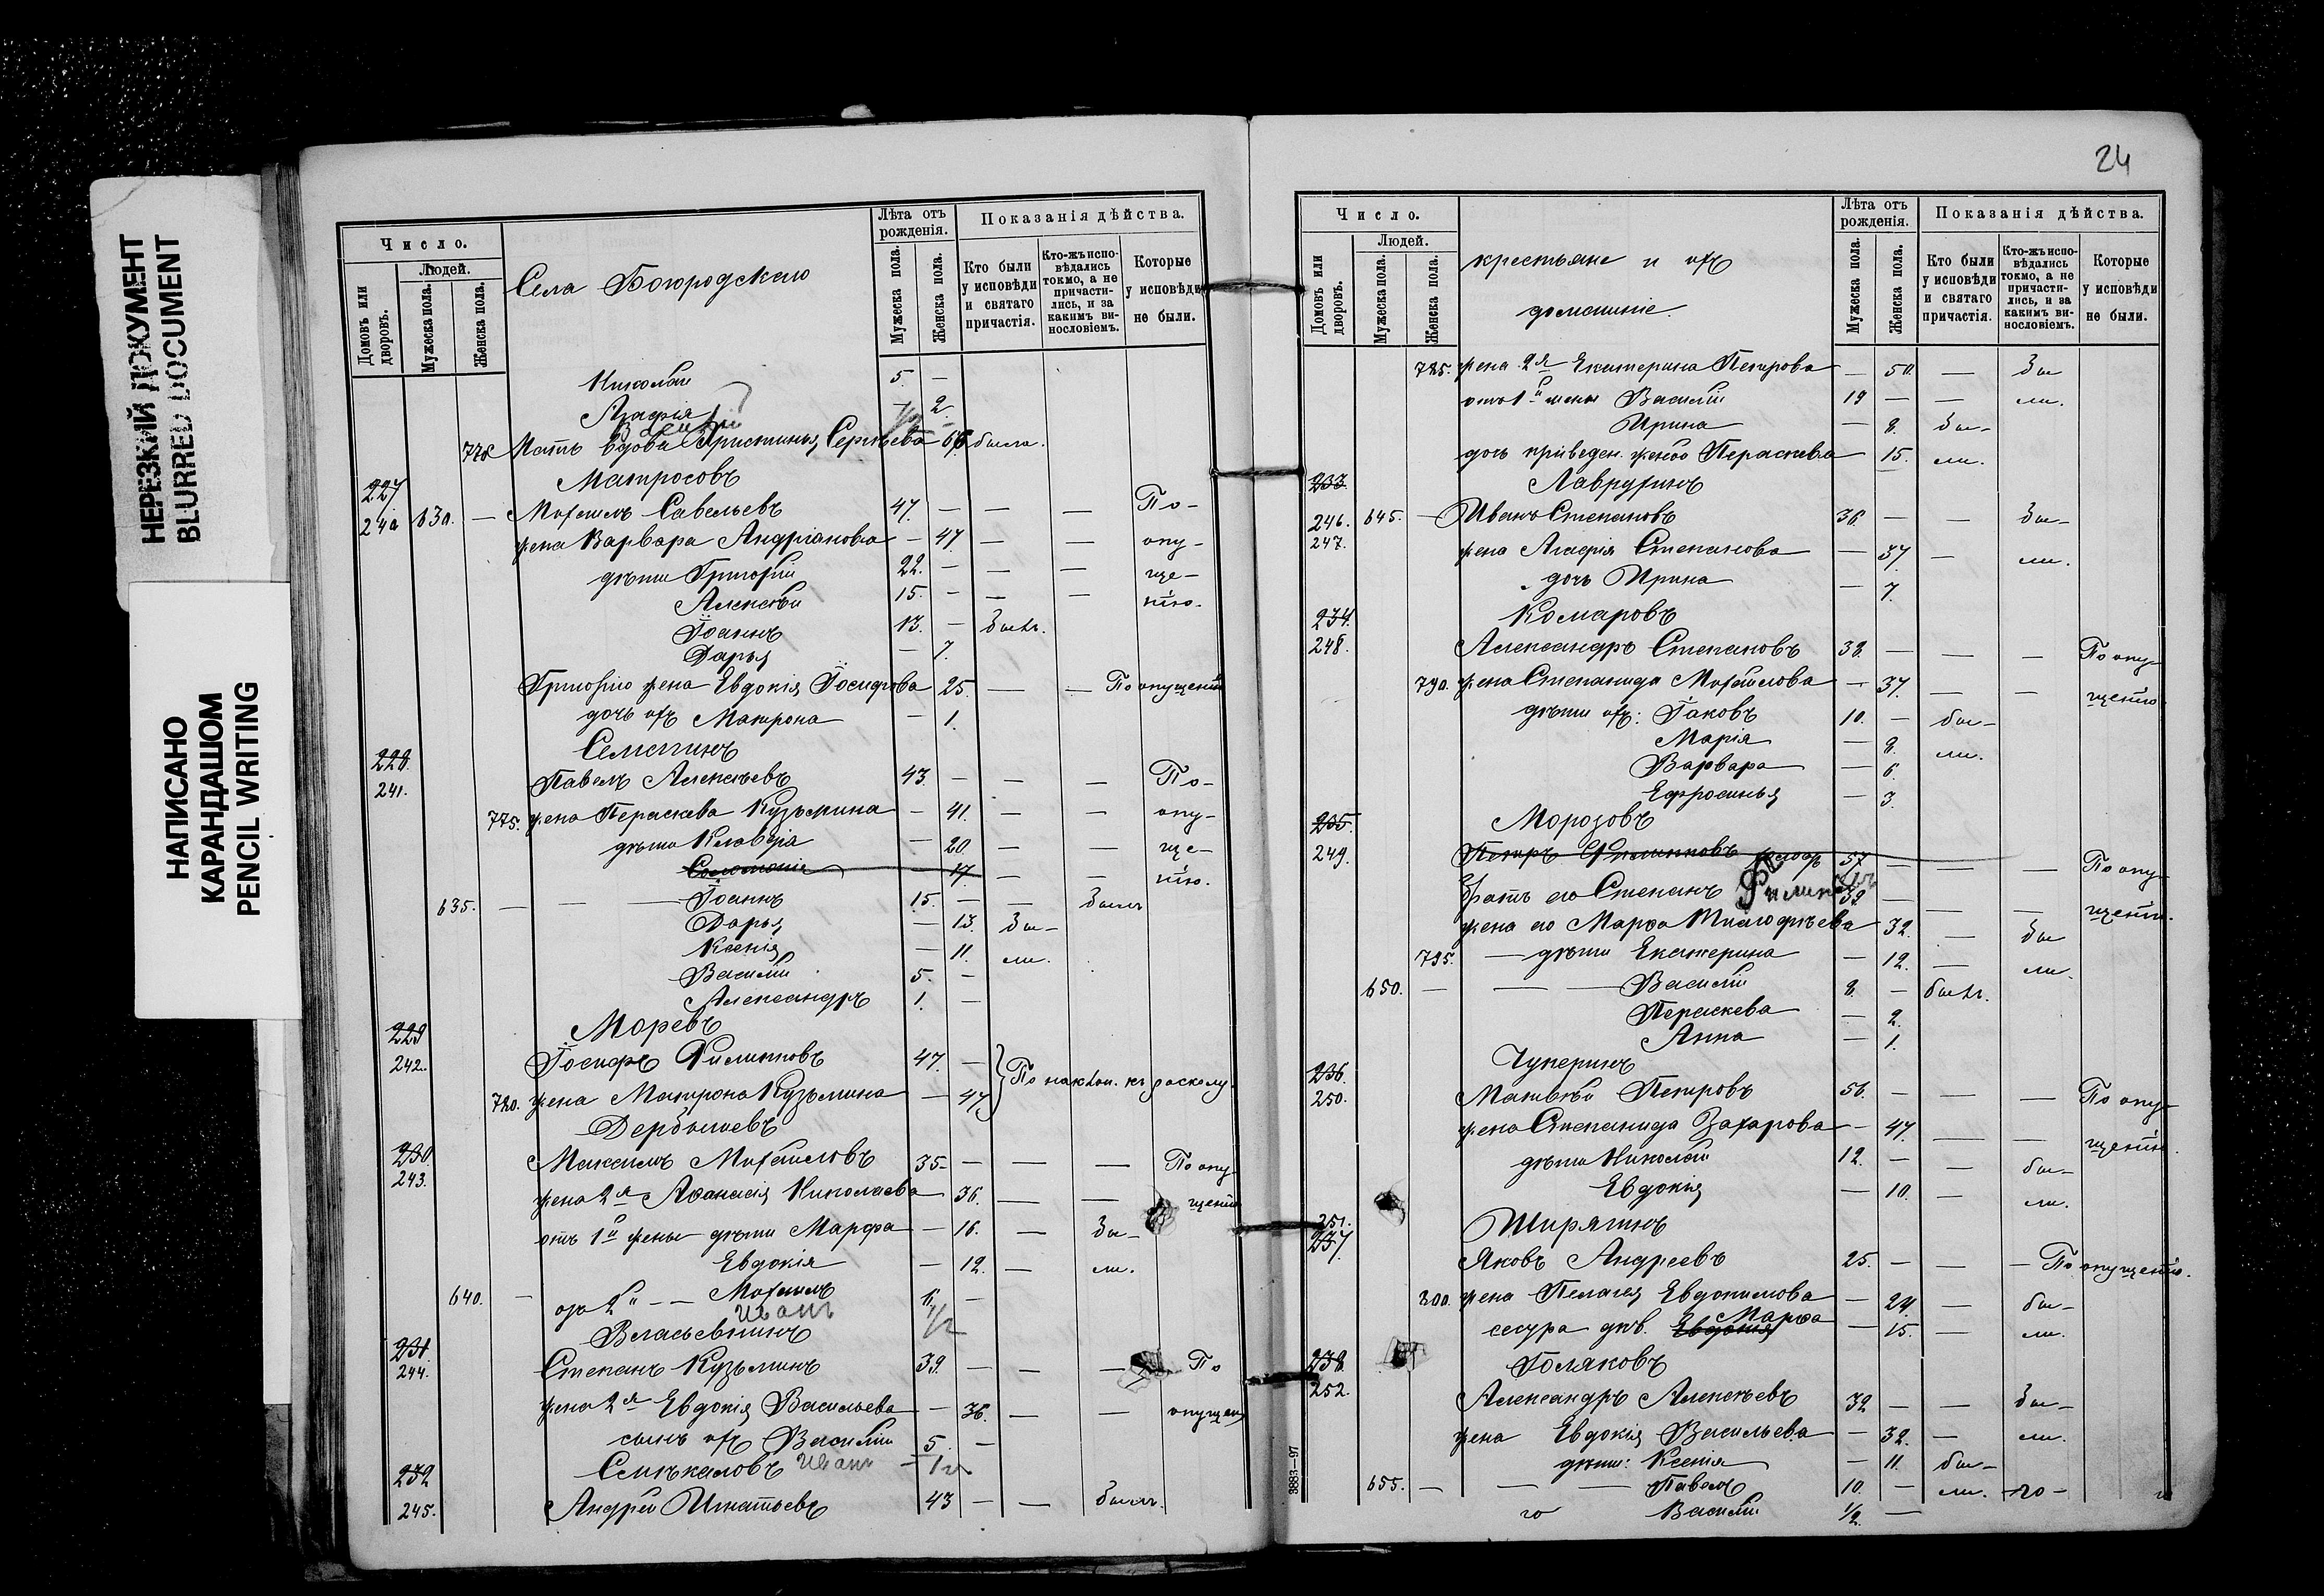 НЕРЕЗКИЙ ДОКУМЕНТ
BLURRED DOCUMENT
НАПИСАНО
КАРАНДАШОМ
PENCIL WRITING
Число.
Людей.
Домовъ или дворовъ.
Мужеска пола.
Женска пола.
Села Богородскаго
Лѣта отъ рожденія.
Мужеска пола.
Женска пола.
Показанія дѣйства.
Кто были у исповѣди и святаго причастія.
Кто-жъ исповѣдались токмо, а не причастились, и за какимъ винословіемъ.
Которые у исповѣди не были.
Николай 5. —
Агафія — 2.
Василій 1/2
Мать вдова Христинья Сергѣева 66 была.
227 Матросовъ
240 630. — Михаилъ Савельевъ 47. — — — По-
жена Варвара Андріанова — 47. — — опу-
дѣти Григорій 22. — — — ще-
Алексѣй 15. — — — нію.
Іоаннъ 13. — былъ.
Дарья — 7.
Григорію жена Евдокія Іосифова 25. — — По опущенію
дочь ихъ Матрона — 1.
228. Семочкинъ
241. Павелъ Алексѣевъ 43. — — — По-
775. жена Параскева Кузьмина — 41. — — опу-
дѣти Клавдія — 20 — — ще-
Соломонія — 17. — — нію.
635. — — — Іоаннъ 15. — — былъ
Дарья — 13. бы-
Ксенія — 11. ли.
Василій 5. —
Александръ 1. —
229 Моревъ
242. Іосифъ Филипповъ 47. — По наклон. къ расколу.
780. жена Матрона Кузьмина — 47
230. Дербышевъ
243. Максимъ Михайловъ 35 — — — По опу-
жена 2я Афанасія Николаева — 36. — — щенію
отъ 1й жены дѣти Марфа — 16. — бы-
Евдокія — 12. — ли.
640. — отъ 2й — — Михаилъ —
Иванъ 1/2
231. Власьевнинъ
244. Степанъ Кузьминъ 39. — — — По
жена 2я Евдокія Васильева — 36. — — опущен
сынъ ихъ Василій 5 —
Иванъ
232
245. Андрей Игнатьевъ 43 — — былъ.
24
Число.
Людей.
Домовъ или дворовъ.
Мужеска пола.
Женска пола.
крестьяне и ихъ
домашніе.
Лѣта отъ рожденія.
Мужеска пола.
Женска пола.
Показанія дѣйства.
Кто были у исповѣди и святаго причастія.
Кто-жъ исповѣдались токмо, а не причастились, и за какимъ винословіемъ.
Которые у исповѣди не были.
785. жена 2я Екатерина Петрова — 50. — бы
отъ 1й жены Василій 19 — — ли.
Ирина — 8. бы-
дочь приведен. женою Параскева — 15. ли.
233. Лаврухинъ
246. 645. — Иванъ Степановъ 36. — — бы-
247. жена Агафія Степанова — 37 — ли.
дочь Ирина — 7.
234. Комаровъ
248. Александръ Степановъ 38. — — — По опу-
790. жена Степанида Михайлова — 37. — — щенію.
дѣти ихъ: Іаковъ 10. — бы-
Марія — 8. ли.
Варвара — 6.
Ефросинья — 3.
235. Морозовъ
249. Петръ Филипповъ 57 — — — По опу-
братъ его Степанъ Филиповъ 39 — — — щенію.
жена его Марфа Тимофѣева — 32. — бы
795. — дѣти Екатерина — 12. — ли.
650. — — — Василій 8. — былъ.
Параскева — 2.
Анна — 1.
236. Чуперинъ
250. Матвѣй Петровъ 56. — — — По опу-
жена Степанида Захарова — 47. — — щенію.
дѣти Николай 12. — — бы-
Евдокія — 10. — ли.
251. Ширягинъ
237.
Яковъ Андреевъ 25. — — — По опущенію.
800. жена Пелагея Евдокимова — 24. — бы-
сестра дѣв. Евдокія Марфа — 15. — ли.
238. Голяковъ
252. Александръ Алексѣевъ 32 — — бы-
жена Евдокія Васильева — 32. — ли.
дѣти: Ксенія — 11. бы-
655. — — — Павелъ 10. — ли.
Василій 1/2. —
3883—97